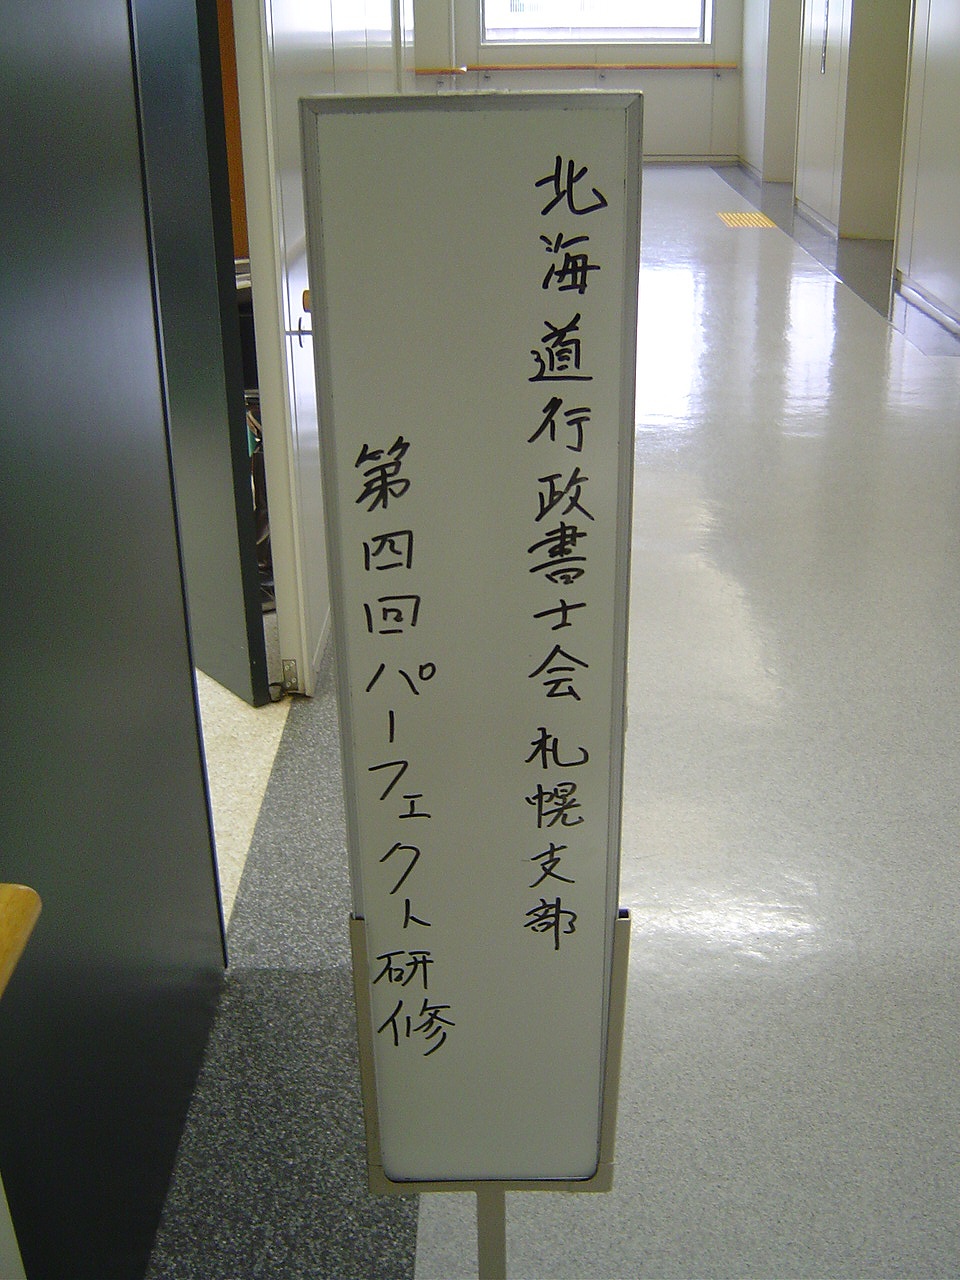 北海道行政書士会 札幌支部
第四回パーフェクト研修